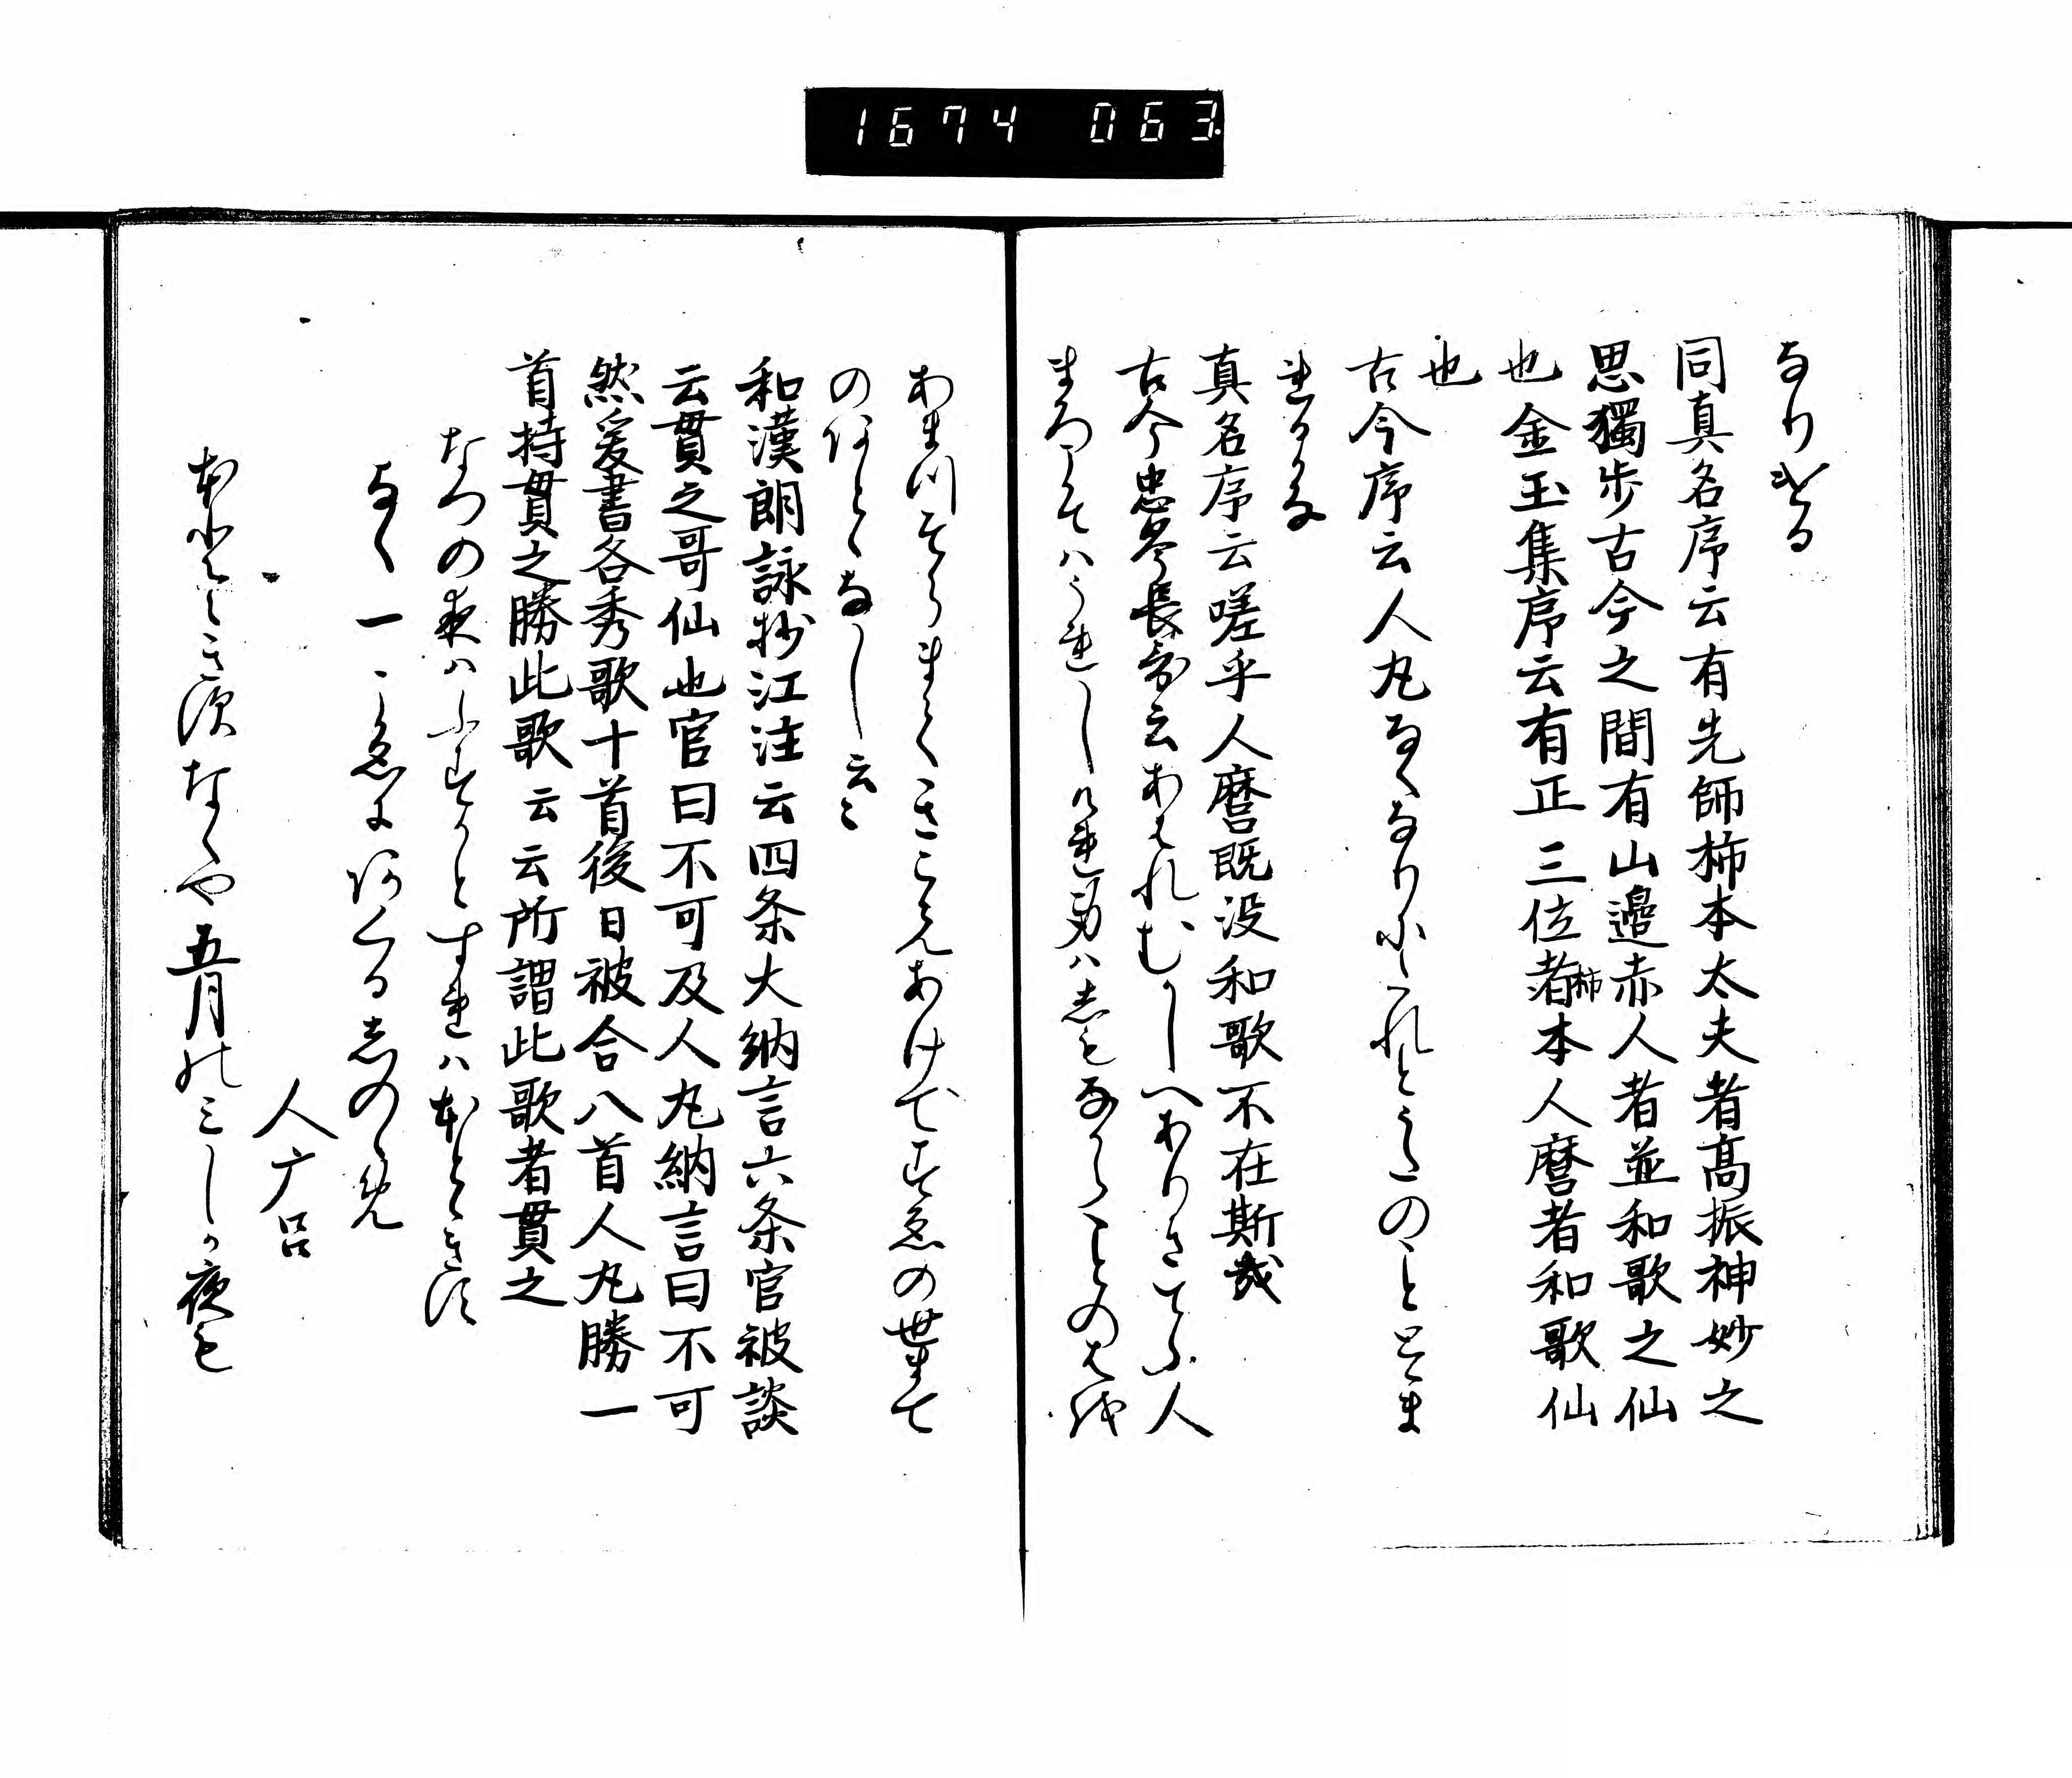 1674 063
なりける
同真名序云有先師柿本太夫者高振神妙之
思獨歩古今之間有山邉赤人者並和歌之仙
也金玉集序云有正三位者柿本人麿者和歌仙
也
古今序云人丸なくなりにたれとうたのことゝま
れるかな
真名序云嗟乎人麿既没和歌不在斯哉
古今忠岑長哥云あはれむかしへありきてふ人
まろこそはうれしけれ身はしもなからことのはを
あまつそらまてきこえあけてすゑの世まて
のあとゝなし云々
和漢朗詠抄江注云四条大納言六条官被談
云貫之哥仙也官曰不可及人丸納言曰不可
然爰書各秀歌十首後日被合八首人丸勝一
首持貫之勝此歌云云所謂此歌者貫之
なつの夜はふすかとすれはほとゝきす
なく一こゑにあくるしのゝめ
人广呂
ほとゝきすなくや五月のみしか夜も